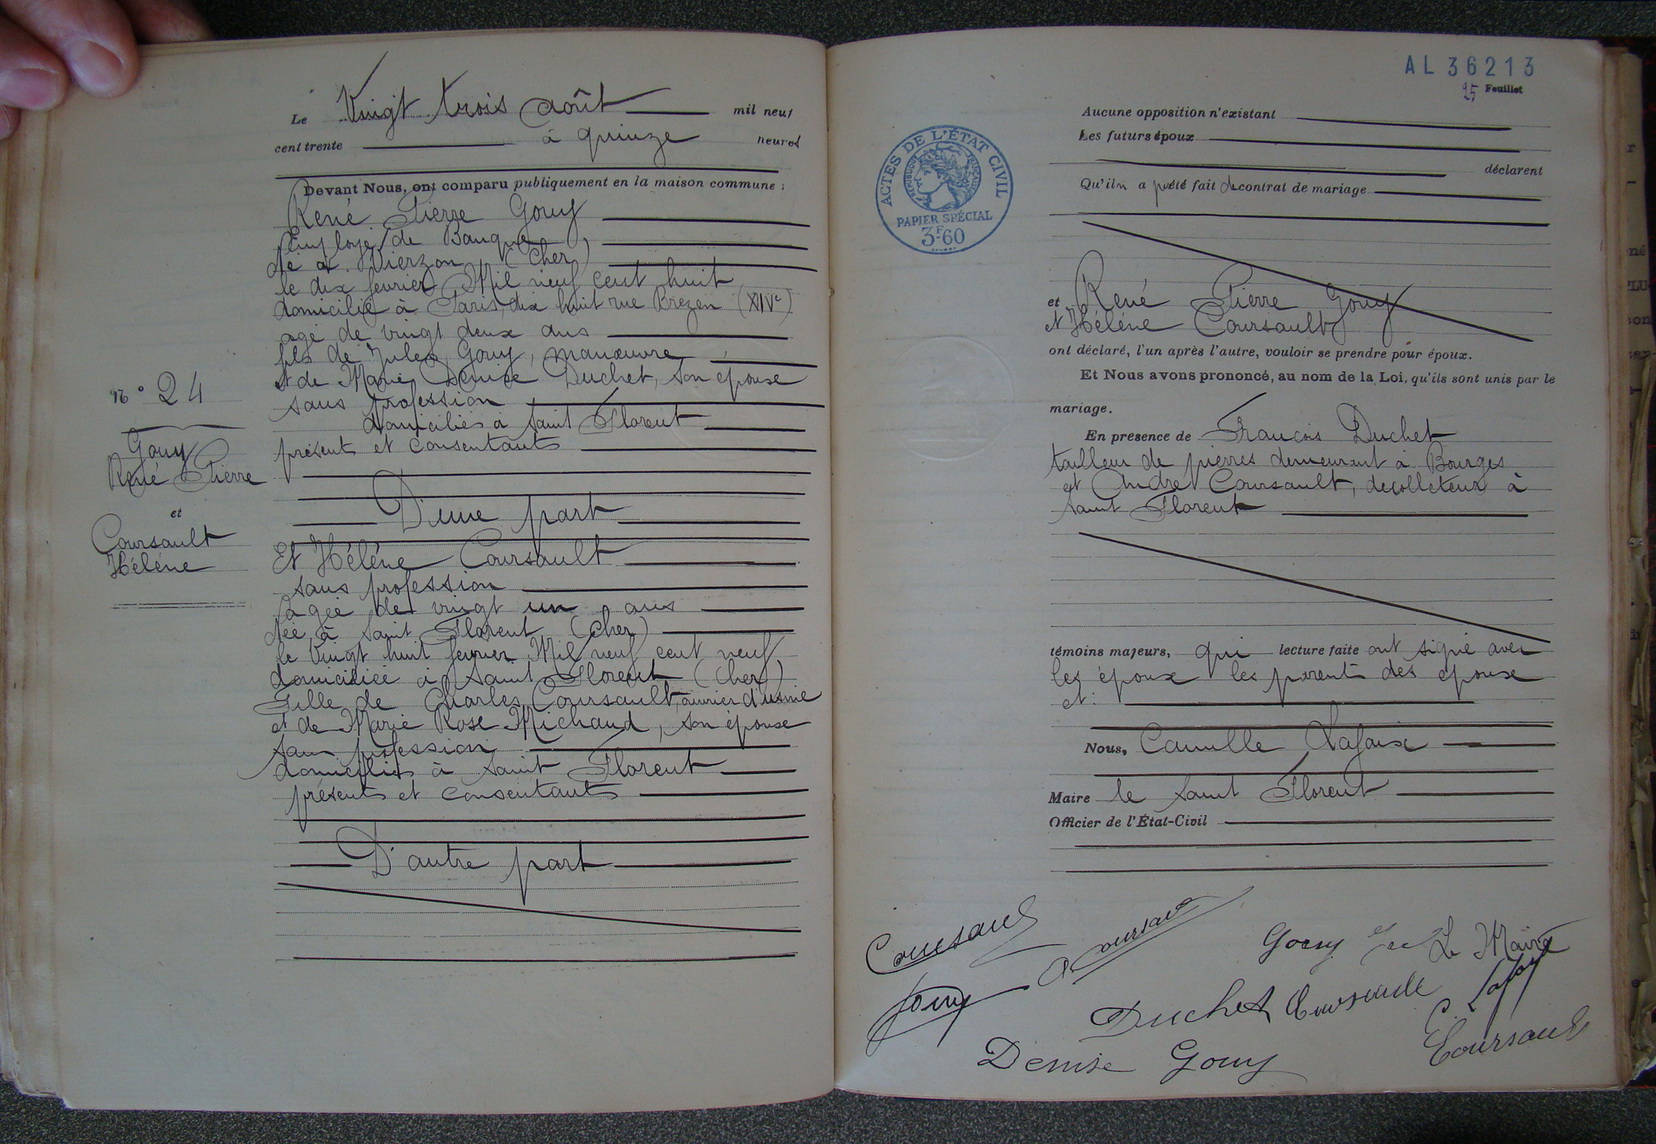 Le Vingt trois août mil neuf
cent trente à quinze heures
Devant Nous, ont comparu publiquement en la maison commune :
René Pierre Gouy
Employé de Banque
Né à Vierzon (Cher)
le dix février Mil neuf cent huit
domicilié à Paris, dix huit rue Brezen (XIVe)
agé de vingt deux ans
fils de Jules Gouy, manœuvre
et de Marie Denise Duchet, son épouse
sans profession
domiciliés à Saint Florent
présents et consentants
D'une part
N° 24
Gouy
René Pierre
et
Coursault
Hélène
Et Hélène Coursault
sans profession
agée de vingt un ans
Née à Saint Florent (Cher)
le Vingt huit février Mil neuf cent neuf
domiciliée à Saint Florent (Cher)
Fille de Charles Coursault, ouvrier d'usine
et de Marie Rose Michaud, son épouse
sans profession
domiciliés à Saint Florent
présents et consentants
D'autre part
AL 36213
25 Feuillet
ACTES DE L'ÉTAT CIVIL
RÉPUBLIQUE FRANÇAISE
PAPIER SPÉCIAL
3F60
Aucune opposition n'existant
Les futurs époux
déclarent
Qu'il n'a pas été fait de contrat de mariage
et René Pierre Gouy
et Hélène Coursault
ont déclaré, l'un après l'autre, vouloir se prendre pour époux.
Et Nous avons prononcé, au nom de la Loi, qu'ils sont unis par le
mariage.
En présence de François Duchet
tailleur de pierres demeurant à Bourges
et André Coursault, décolleteur à
Saint Florent
témoins majeurs, qui lecture faite ont signé avec
les époux les parents des époux
et :
Nous, Camille Lafaix
Maire de Saint Florent
Officier de l'État-Civil
Coursault
A Coursault
Gouy
Le Maire
Gouy
Duchet
C. Lafaix
Denise Gouy
Coursault